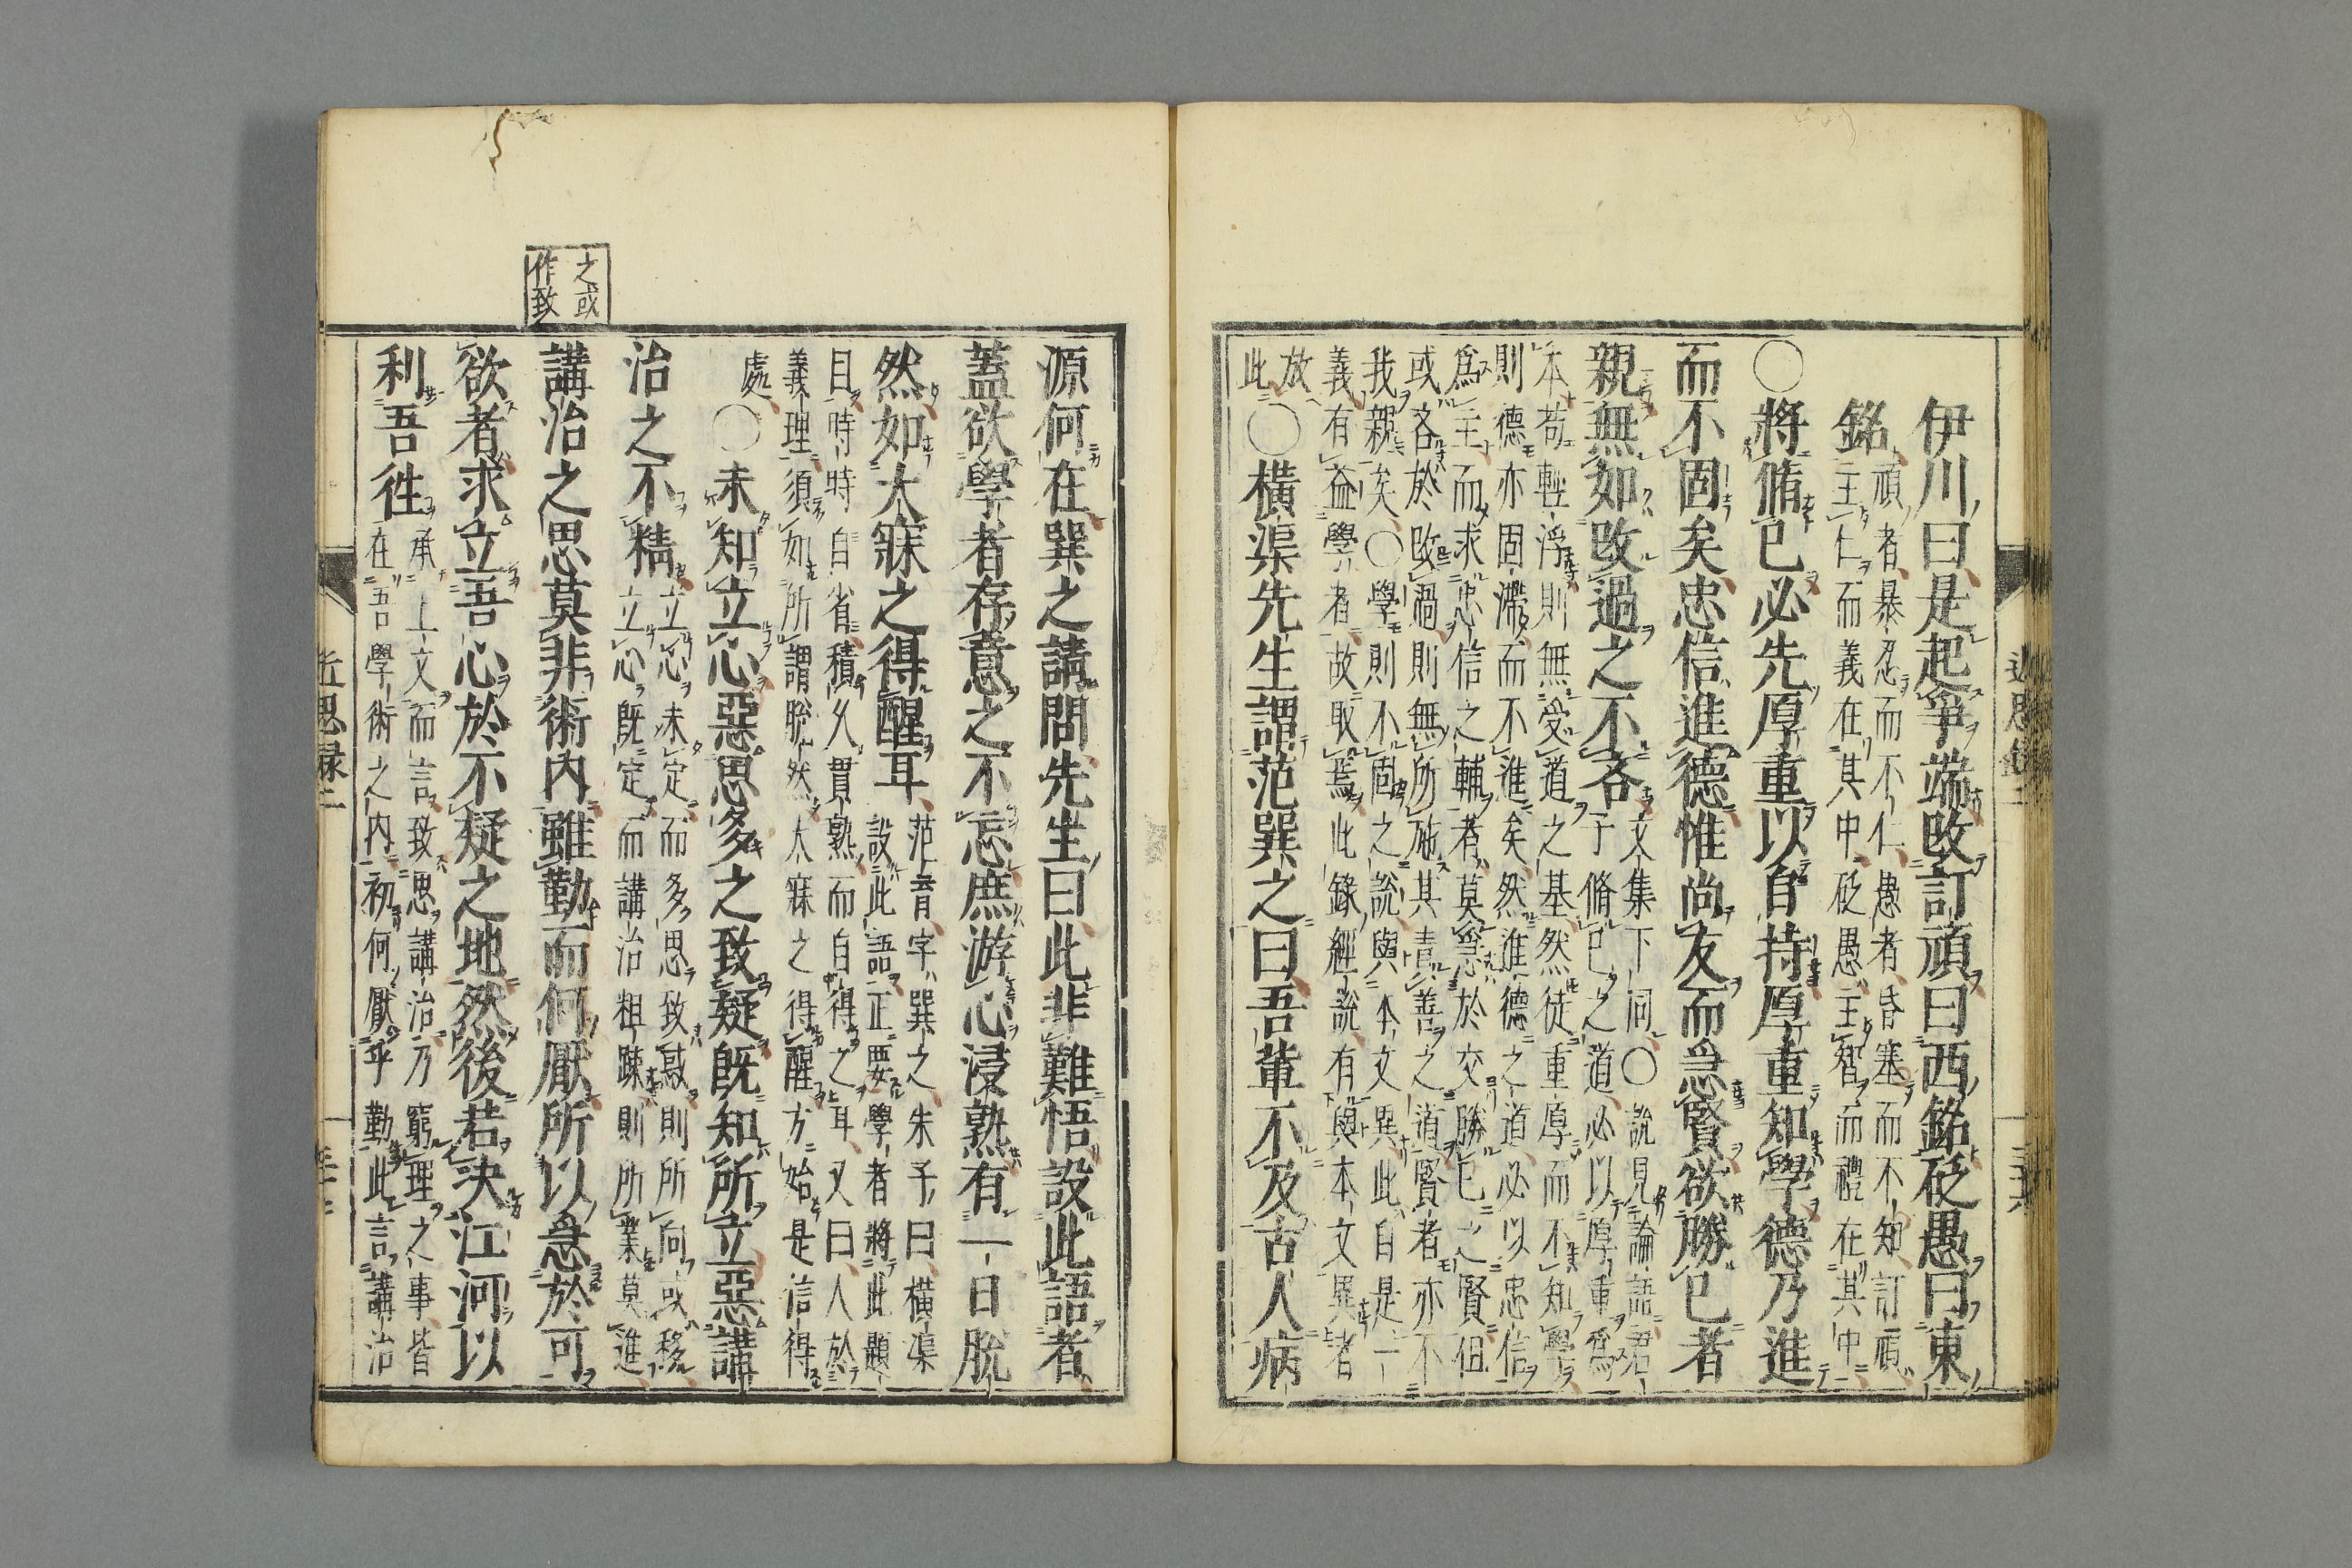 伊川曰是起爭端改訂頑曰西銘砭愚曰東
銘
頑者暴忍而不仁愚者昏塞而不知訂頑
主仁而義在其中砭愚主智而禮在其中
○將脩已必先厚重以自持厚重知學德乃進
而不固矣忠信進德惟尚友而急賢欲勝已者
親無如改過之不吝
文集下同○說見論語君
子脩已之道必以厚重爲
本苟輕浮則無受道之基然徒重厚而不知學
則德亦固滯而不進矣然進德之道必以忠信
爲主而求忠信之輔者莫急於交勝已之賢但
或吝於改過則無所施其責善之道賢者亦不
我親矣○學則不固之說與本文異此自是一
義有益學者故取焉此錄經說有與本文異者
放
此
○橫渠先生謂范巽之曰吾輩不及古人病
源何在巽之請問先生曰此非難悟設此語者
蓋欲學者存意之不忘庶游心浸熟有一日脫
然如大寐之得醒耳
范育字巽之朱子曰橫渠
設此語正要學者將此題
目時時自省積久貫熟而自得之耳又曰人於
義理須如所謂脫然大寐之得醒方始是信得
處
○未知立心惡思多之致疑既知所立惡講
治之不精
立心未定而多思致惑則所向或移
立心既定而講治粗踈則所業莫進
講治之思莫非術內雖勤而何厭所以急於可
欲者求立吾心於不疑之地然後若決江河以
利吾徃
承上文而言致思講治乃窮理之事皆
在吾學術之內初何厭乎勤此言講治
之或
作致
近思録二